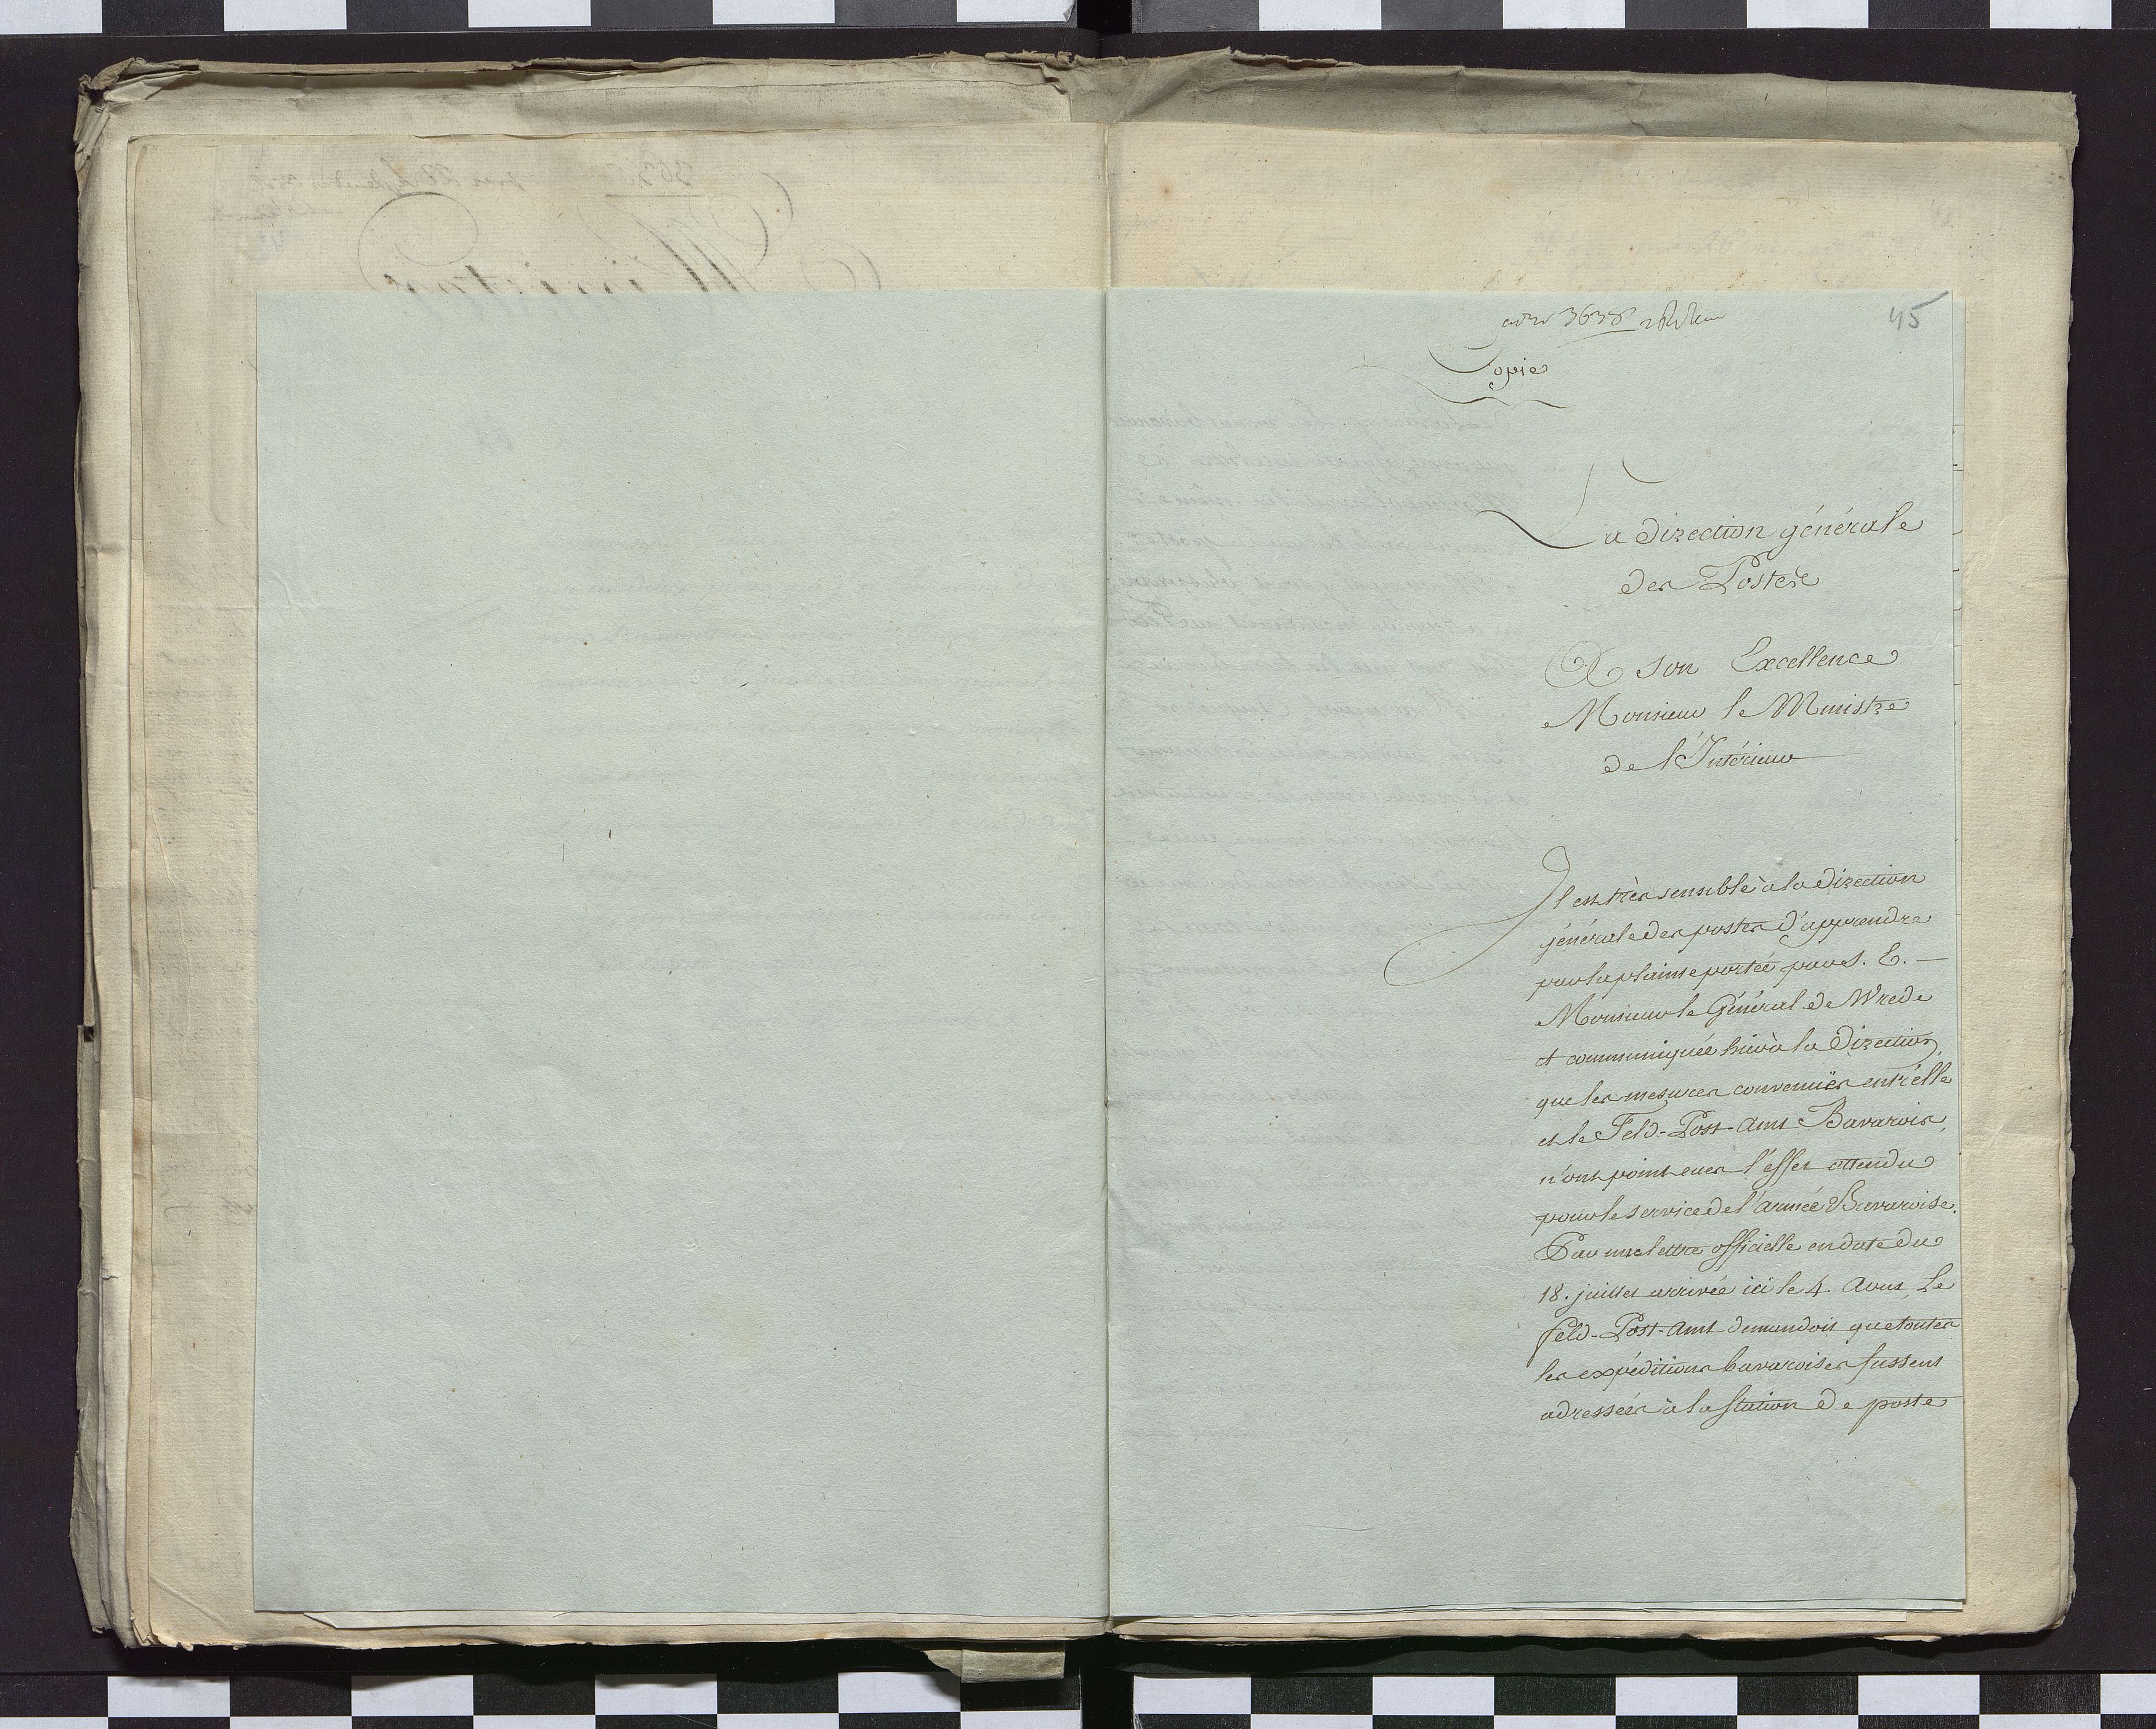 3638
45
Copie
La direction générale
des Postes
A son Excellence
Monsieur le Ministre
de l'Intérieur
Il est très sensible à la direction
générale des postes d'apprendre
par la plainte portée par S. E. —
Monsieur le Général de Wrede
et communiquée hier à la Direction,
que les mesures convenuës entr'elle
et le Feld-Post-Amt Bavarois,
n'ont point eues l'effet attendu
pour le service de l'armée Bavaroise.
Par une lettre officielle en date du
18. juillet arrivée ici le 4. Aout, Le
feld-Post-Amt demandoit que toutes
les expéditions bavaroises fussent
adressées à la station de poste